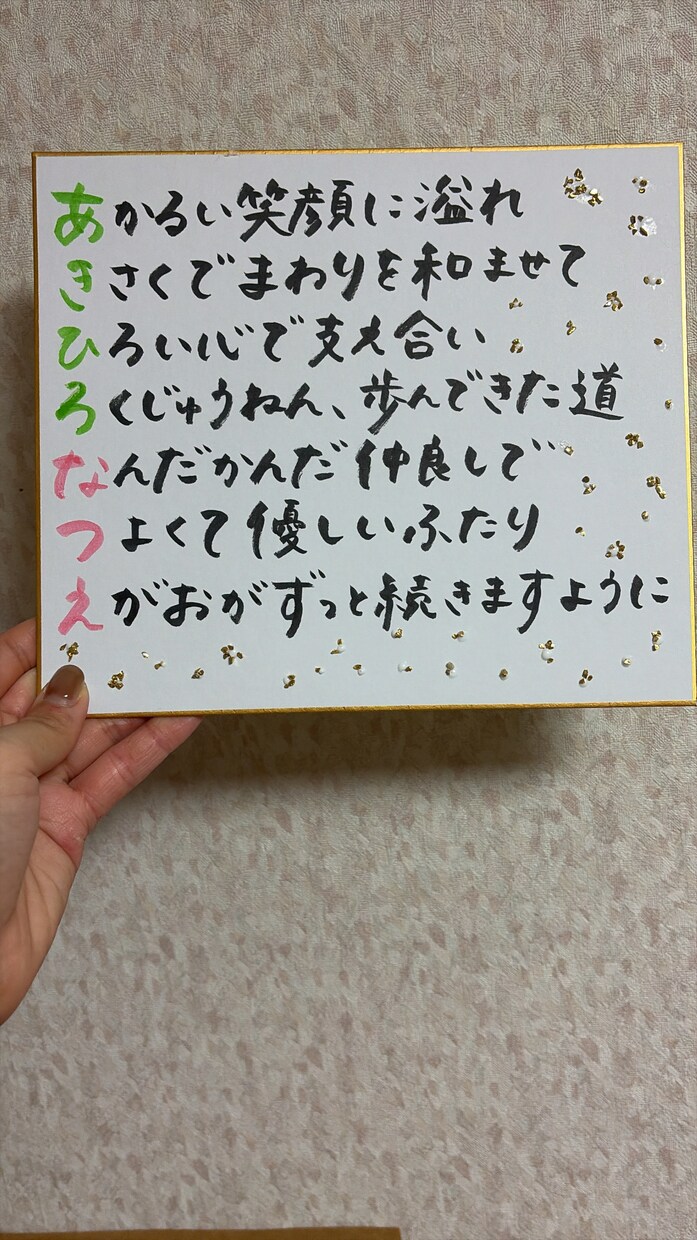 あかるい笑顔に溢れ
きさくでまわりを和ませて
ひろい心で支え合い
ろくじゅうねん、歩んできた道
なんだかんだ仲良しで
つよくて優しいふたり
えがおがずっと続きますように